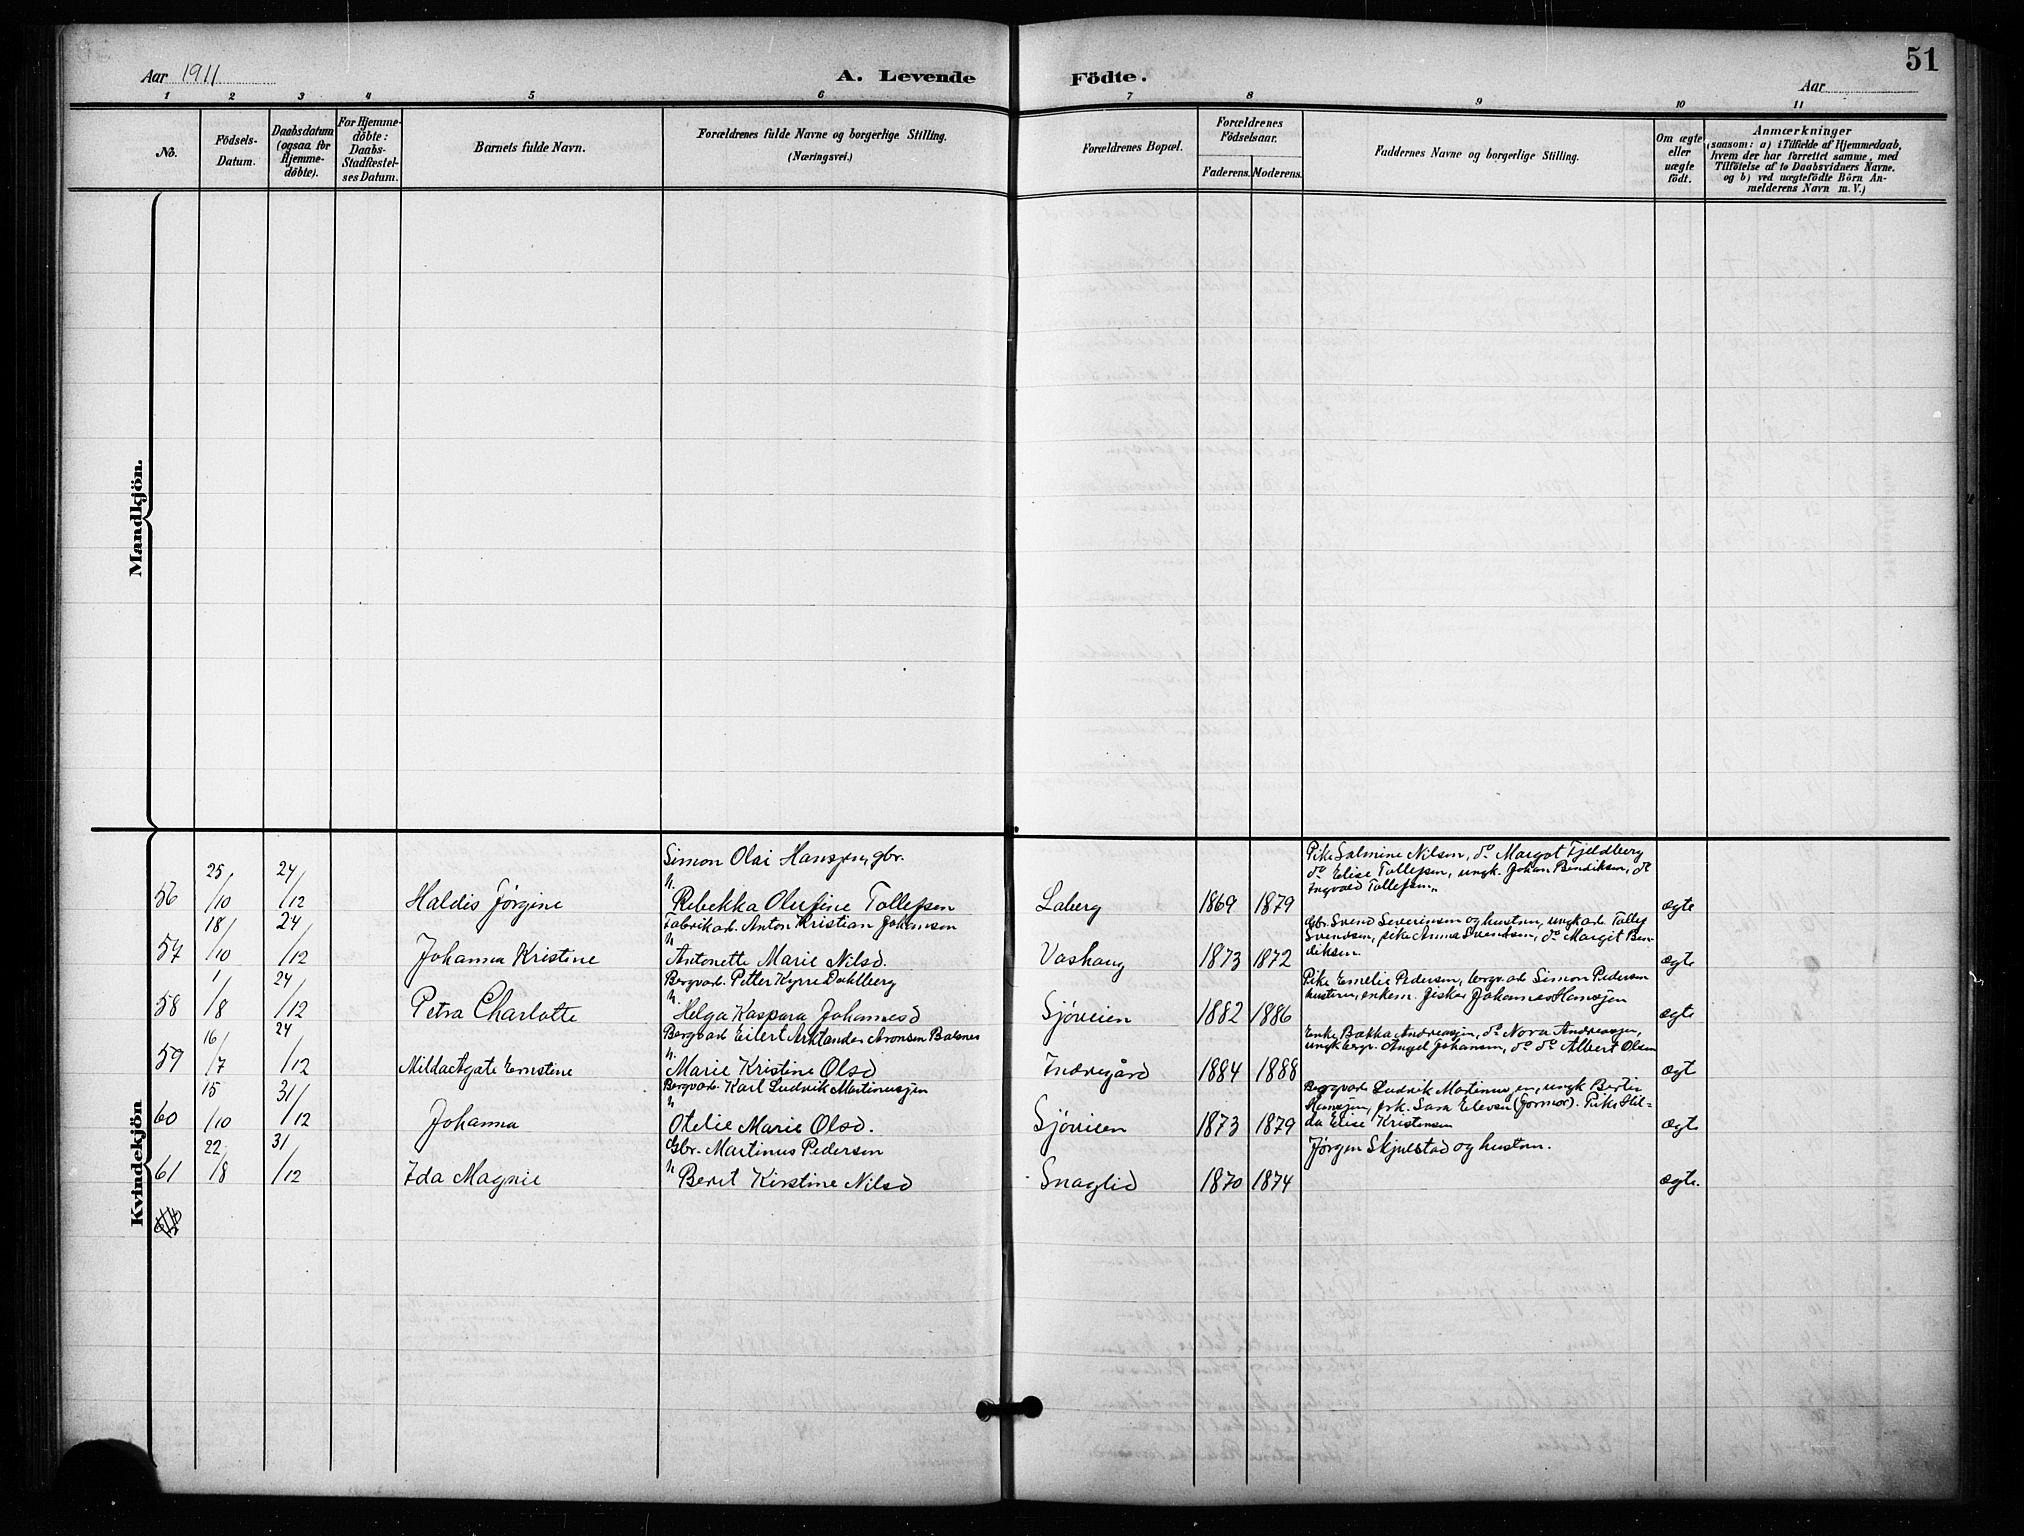 51
Aar 1911
A. Levende Födte.
Aar
1 2 3 4 5 6 7 8 9 10 11
No.
Födsels-Datum.
Daabsdatum (ogsaa for Hjemme-döbte).
For Hjemme-döbte: Daabs-Stadfæstel-ses Datum.
Barnets fulde Navn.
Forældrenes fulde Navne og borgerlige Stilling.
(Næringsvei.)
Forældrenes Bopæl.
Forældrenes Födselsaar.
Faderens. Moderens.
Faddernes Navne og borgerlige Stilling.
Om ægte eller uægte födt.
Anmærkninger
(saasom: a) i Tilfælde af Hjemmedaab,
hvem der har forrettet samme, med
Tilföielse af to Daabsvidners Navne,
og b) ved uægtefödte Börn An-
melderens Navn m. V.)
Mandkjön.
Kvindekjön
56 25/10 24/12 Haldis Jørgine
Simon Olai Hansen, gbr.
Rebekka Olufine Tollefsen
Laberg 1869 1879
Pike Salmine Nilsen, do Margot Fjeldberg
do Elise Tollefsen, ungk. Johan Bendiksen, do
Ingvald Tollefsen
ægte
57 18/10 24/12 Johanna Kristine
Fabrikarb. Anton Kristian Johansen
Antonette Marie Nilsd.
Vashaug 1873 1872
Gbr. Svend Severinsen og hustru, ungkarl Tollef
Svendsen, pike Anna Svendsen, do Margit Ben-
diksen.
ægte
58 1/8 24/12 Petra Charlotte
Bergvarb. Petter Kyrre Dahlberg
Helga Kaspara Johannesd
Sjøveien 1882 1886
Pike Emelie Pedersen, bergv.arb Simon Pedersen
hustru, enkem. fisker Johannes Hansen
ægte
59 16/7 24/12 Milda Agate Ernstine
Bergvarb Eilert Arntander Aronsen Balsnes
Marie Kristine Olsd
Indregård 1884 1888
Enke Bakka Andreassen, do Nora Andreassen,
ungk bergv. Angel Johansen, do do Albert Olsen
ægt
60 15/10 31/12 Johanna
Bergvarb. Karl Ludvik Martinussen
Otelie Marie Olsd.
Sjøveien 1873 1879
Bergvarb Ludvik Martinussen, ungk Bertin
Hansen, frk. Sara Elevsen (Jormor). Pike Hil-
da Elise Kristensen
ægte
61 22/8 31/12 Ida Magnie
Gbr. Martinus Pedersen
Berit Kirstine Nilsd
Snaglid 1870 1874
Jørgen Skjulstad og hustru.
ægte.